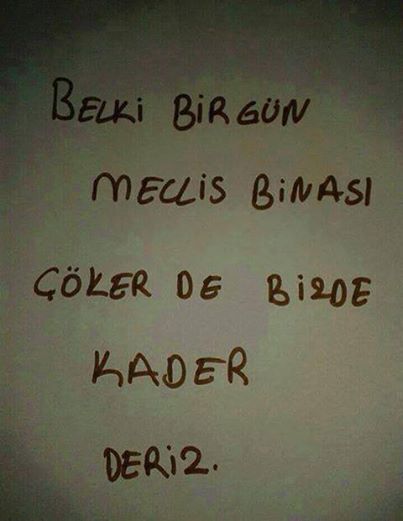 BELKi BiR GÜN
MECLiS BiNASI
ÇÖKER DE BiZDE
KADER
DERiZ.